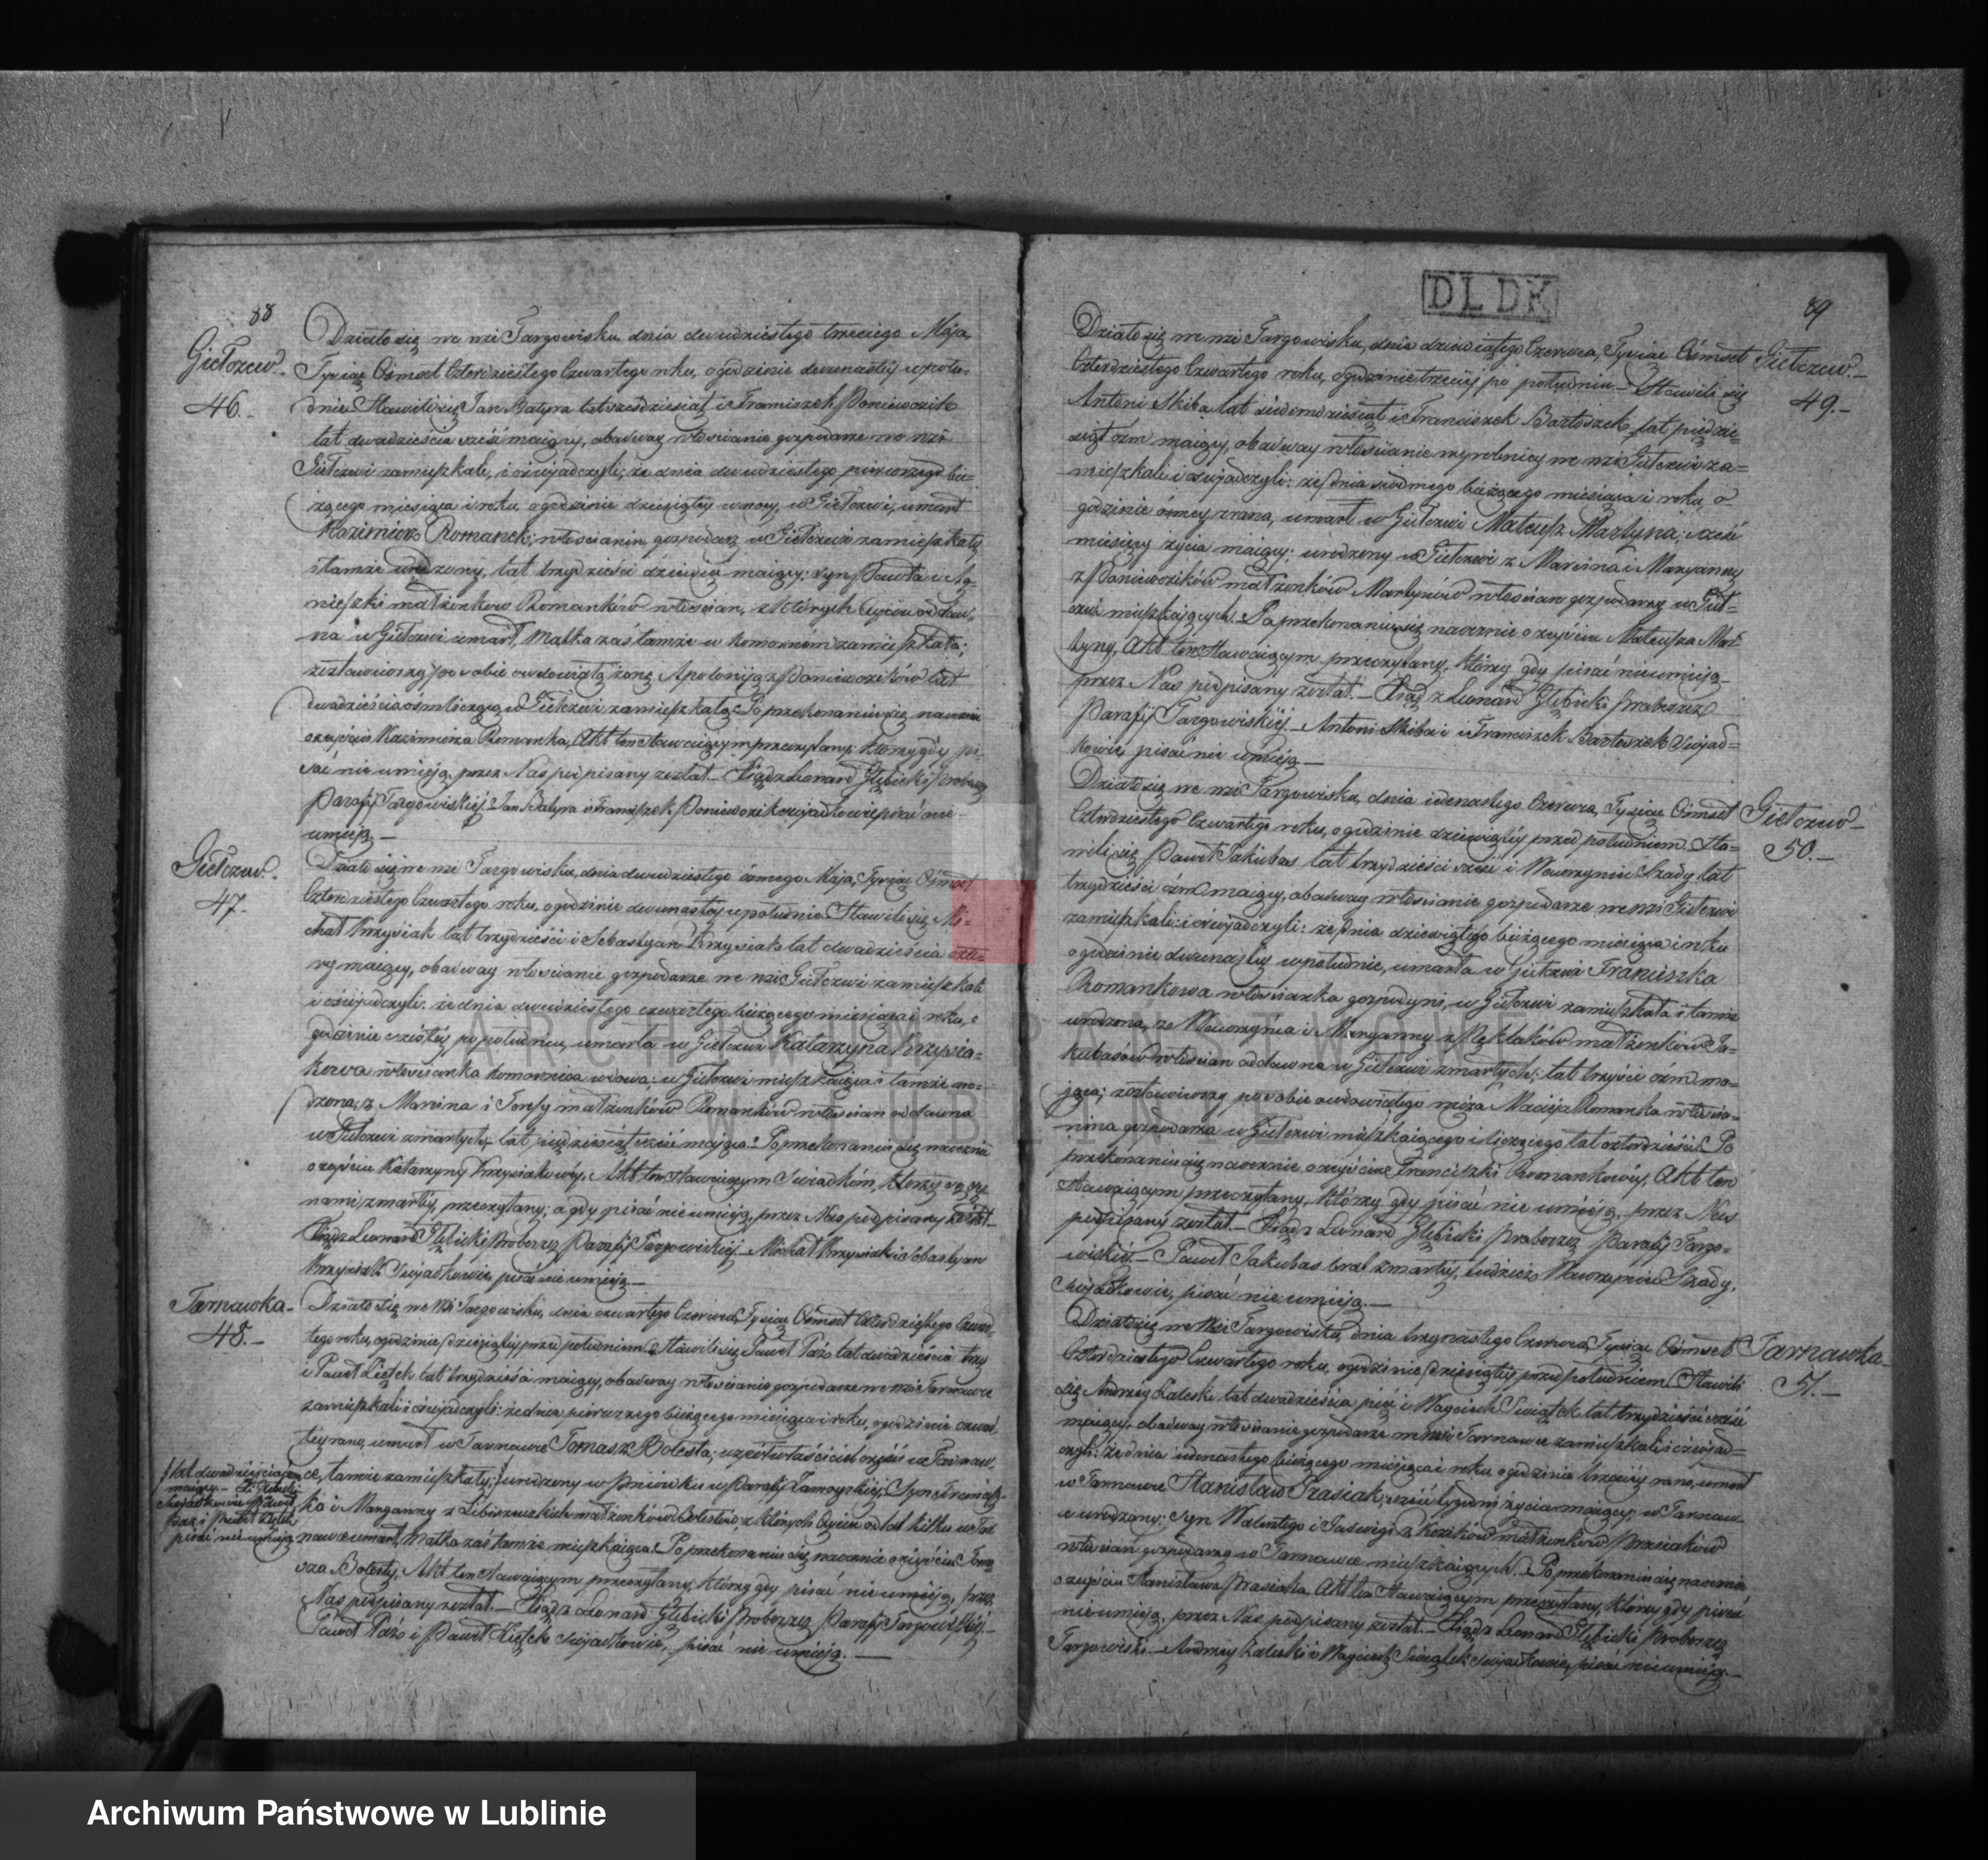 88
Giełczew.
46.
Działo się we wsi Targowisku dnia dwudziestego trzeciego Maja,
Tysiąc Ośmset Czterdziestego Czwartego roku, o godzinie dwunastej w połu-
dnie. Stawili się Jan Batyra lat sześćdziesiąt i Franciszek Poniewozik
lat dwadzieścia sześć maiący, obadway włościanie gospodarze we wsi
Giełczwi zamieszkali, i oświadczyli; że dnia dwudziestego pierwszego bie-
żącego miesiąca i roku o godzinie dziesiątej w nocy, w Giełczwi, umarł
Kazimierz Romanek; włościanin gospodarz w Giełczwi zamieszkały
i tamże urodzony, lat trzydzieści dziewięć maiący; syn Pawła i Ag-
nieszki małżonków Romanków włościan, z których Oyciec od daw-
na w Giełczwi umarł, Matka zaś tamże w komornem zamieszkała;
zostawiwszy po sobie owdowiałą żonę Apolonię z Poniewozików lat
dwadzieścia ośm liczącą w Giełczwi zamieszkałą. Po przekonaniu się naocznie
o zejściu Kazimierza Romanka, Akt ten stawaiącym przeczytany; którzy gdy pi-
sać nie umieją, przez Nas podpisany został. Xiądz Leonard Głębicki Proboszcz
Parafij Targowiskiej. Jan Batyra i Franciszek Poniewozik świadkowie pisać nie
umieją.
Giełczew.
47.
Działo się we wsi Targowisku, dnia dwudziestego ósmego Maja, Tysiąc Ośmset
Czterdziestego Czwartego roku, o godzinie dwunastej w południe. Stawili się Mi-
chał Krzysiak lat trzydzieści i Sebastyan Krzysiak lat dwadzieścia czte-
ry maiący, obadway włościanie gospodarze we wsi Giełczwi zamieszkali
i oświadczyli: że dnia dwudziestego czwartego bieżącego miesiąca i roku, o
godzinie szóstej po południu, umarła w Giełczwi Katarzyna Krzysia-
kowa włościanka komornica wdowa; w Giełczwi mieszkaiąca i tamże uro-
dzona, z Marcina i Teresy małżonków Romanków włościan od dawna
w Giełczwi zmarłych, lat pięćdziesiąt sześć maiąca. Po przekonaniu się naocznie
o zejściu Katarzyny Krzysiakowej, Akt ten stawaiącym Świadkom, którzy są sy-
nami zmarłej, przeczytany; a gdy pisać nie umieją, przez Nas podpisany został.
Xiądz Leonard Głębicki Proboszcz Parafij Targowiskiej. Michał Krzysiak i Sebastyan
Krzysiak Świadkowie pisać nie umieją.
Tarnawka.
48.
Działo się we wsi Targowisku, dnia czwartego Czerwca, Tysiąc Ośmset Czterdziestego Czwar-
tego roku, o godzinie dziesiątej przed południem. Stawili się Paweł Paź lat dwadzieścia trzy
i Paweł Ziętek lat trzydzieścia maiący, obadway włościanie gospodarze we wsi Tarnawce
zamieszkali i oświadczyli: że dnia pierwszego bieżącego miesiąca i roku, o godzinie czwar-
tej rano, umarł w Tarnawce Tomasz Bolesta; współwłaściciel części w Tarnaw-
ce, tamże zamieszkały; urodzony w Pniówku w Parafij Zamoyskiej, Syn Francisz-
ka i Maryanny z Libiszewskich małżonków Bolestów, z których Oyciec od lat kilku w Tar-
nawce umarł, Matka zaś tamże mieszkaiąca. Po przekonaniu się naocznie o zejściu Toma-
sza Bolesty, Akt ten stawaiącym przeczytany, którzy gdy pisać nie umieją, przez
Nas podpisany został. Xiądz Leonard Głębicki Proboszcz Parafij Targowiskiej.
Paweł Paź i Paweł Ziętek świadkowie, pisać nie umieją.
maiący.
Świadkowie Paweł
Paź i Paweł Ziętek
pisać nie umieją
DLDK
89
Giełczew.
49.
Działo się we wsi Targowisku, dnia dziewiątego Czerwca, Tysiąc Ośmset
Czterdziestego Czwartego roku, o godzinie trzeciej po południu. Stawili się
Antoni Skiba lat siedemdziesiąt i Franciszek Bartoszek lat pięćdzie-
siąt ośm maiący, obadway włościanie wyrobnicy we wsi Giełczwi za-
mieszkali i oświadczyli: że dnia siódmego bieżącego miesiąca i roku, o
godzinie ósmej z rana, umarł w Giełczwi Mateusz Martyna; sześć
miesięcy życia maiący; urodzony w Giełczwi z Marcina i Maryanny
z Poniewozików małżonków Martynów włościan gospodarzy w Gieł-
czwi mieszkaiących. Po przekonaniu się naocznie o zejściu Mateusza Mar-
tyny, Akt ten stawaiącym przeczytany, którzy gdy pisać nie umieją
przez Nas podpisany został. Xiądz Leonard Głębicki Proboszcz
Parafij Targowiskiej. Antoni Skiba i Franciszek Bartoszek Świad-
kowie pisać nie umieją.
Giełczew
50.
Działo się we wsi Targowisku, dnia iedenastego Czerwca, Tysiąc Ośmset
Czterdziestego Czwartego roku, o godzinie dziewiątej przed południem. Sta-
wili się Paweł Jakubas lat trzydzieści sześć i Wawrzyniec Szady lat
trzydzieści ośm maiący, obadway włościanie gospodarze we wsi Giełczwi
zamieszkali i oświadczyli: że dnia dziewiątego bieżącego miesiąca i roku
o godzinie dwunastej w południe, umarła w Giełczwi Franciszka
Romankowa włościanka gospodyni, w Giełczwi zamieszkała i tamże
urodzona, ze Wawrzyńca i Maryanny z Pęklaków małżonków Ja-
kubasów włościan od dawna w Giełczwi zmarłych; lat trzyści ośm ma-
jąca; zostawiwszy po sobie owdowiałego męża Macieja Romanka włościa-
nina gospodarza w Giełczwi mieszkaiącego i liczącego lat czterdzieści. Po
przekonaniu się naocznie o zejściu Franciszki Romankowej, Akt ten
stawaiącym przeczytany, którzy gdy pisać nie umieją, przez Nas
podpisany został. Xiądz Leonard Głębicki Proboszcz Parafij Targo-
wiskiej. Paweł Jakubas brat zmarłej, tudzież Wawrzyniec Szady,
świadkowie, pisać nie umieją.
Tarnawka
51.
Działo się we Wsi Targowisku, dnia trzynastego Czerwca, Tysiąc Ośmset
Czterdziestego Czwartego roku, o godzinie dziesiątej przed południem. Stawili
się Andrzej Zaleski lat dwadzieścia pięć i Woyciech Świątek lat trzydzieści sześć
maiący, obadway włościanie gospodarze we wsi Tarnawce zamieszkali i oświad-
czyli: że dnia iedenastego bieżącego miesiąca i roku o godzinie trzeciej rano, umarł
w Tarnawce Stanisław Prasiak; sześć tygodni życia maiący, w Tarnaw-
ce urodzony; Syn Walentego i Jadwigi z Kozików małżonków Prasiaków
włościan gospodarzy w Tarnawce mieszkaiących. Po przekonaniu się naocznie
o zejściu Stanisława Prasiaka, Akt ten stawaiącym przeczytany, którzy gdy pisać
nie umieją, przez Nas podpisany został. Xiądz Leonard Głębicki Proboszcz
Targowiski. Andrzej Zaleski i Woyciech Świątek świadkowie, pisać nie umieją.
ARCHIWUM PAŃSTWOWE
W LUBLINIE
Archiwum Państwowe w Lublinie